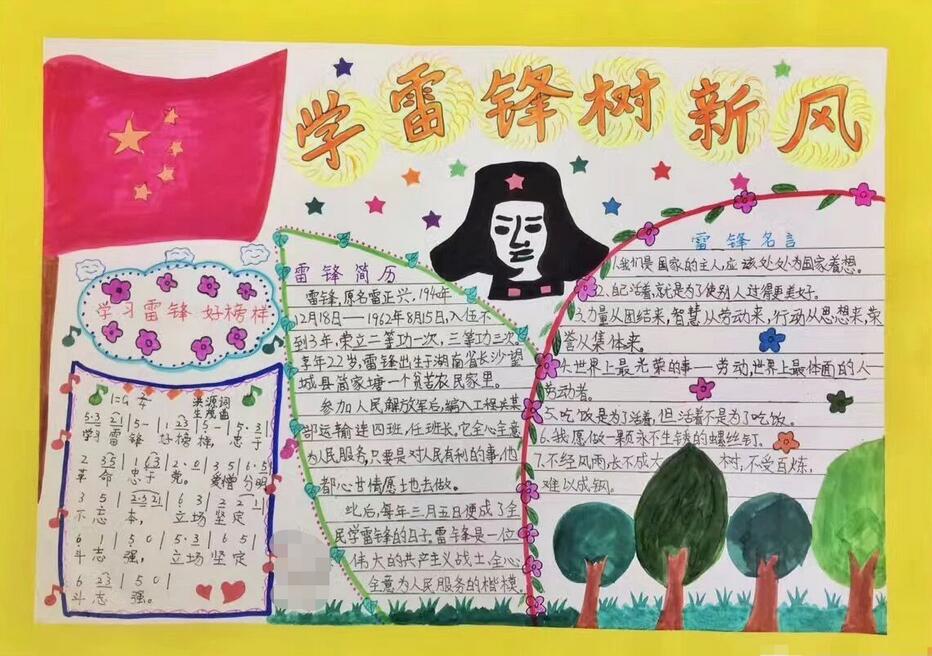 学雷锋树新风
学习雷锋 好榜样
1=G 2/4
洪源词
生茂曲
5·3 2 1 | 5 - | 1· 2 3 | 5 - | 5· 3 |
学习 雷 锋 好 榜 样， 忠 于
2 3 5 | 1 6 3 | 2 · 0 | 3 5 | 6 · 5 |
革 命 忠 于 党。 爱憎 分明
3 5 | 2·5 2 1 | 6 3 | 2 2 1 |
不 忘 本， 立场 坚定
6 1 | 5 0 | 5·3 | 6 5 |
斗 志 强， 立场 坚定
6 2 3 | 5 0 |
斗 志 强。
雷锋简历
雷锋，原名雷正兴，1940年
12月18日——1962年8月15日，入伍不
到3年，荣立二等功一次，三等功三次。
享年22岁，雷锋出生于湖南省长沙望
城县简家塘一个贫苦农民家里。
参加人民解放军后，编入工程兵某
部运输连四班，任班长。它全心全意
为人民服务，只要是对人民有利的事，他
都心甘情愿土也去做。
此后，每年三月五日便成了全
民学雷锋的日子。雷锋是一位
伟大的共产主义战士，全心
全意为人民服务的楷模。
雷锋名言
1.我们是国家的主人，应该处处为国家着想。
2.自己活着，就是为了使别人过得更美好。
3.力量从团结来，智慧从劳动来，行动从思想来，荣
誉从集体来。
4.世界上最光荣的事——劳动，世界上最体面的人—
劳动者。
5.吃饭是为了活着，但活着不是为了吃饭。
6.我愿做一颗永不生锈的螺丝钉。
7.不经风雨，长不成大 树，不受百炼，
难以成钢。